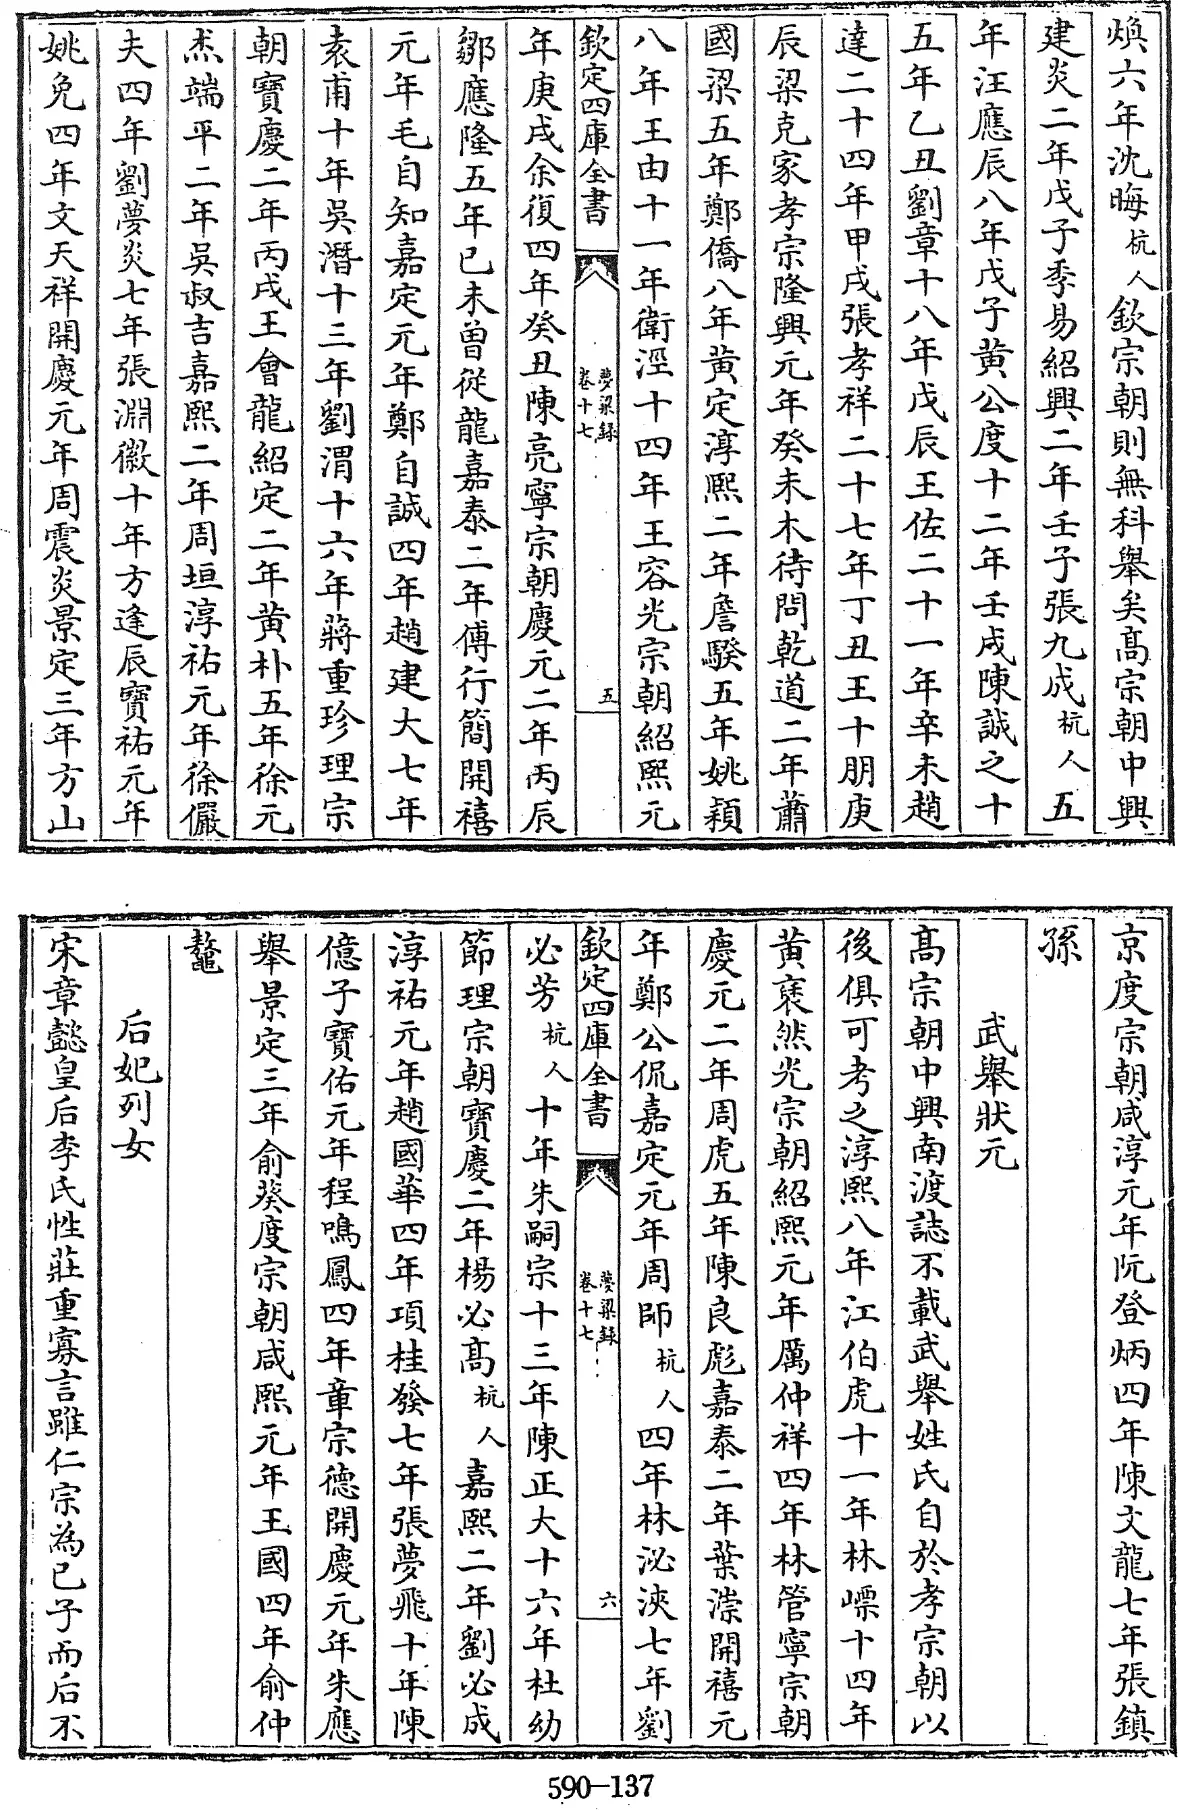 煥六年沈晦杭人欽宗朝則無科舉矣髙宗朝中興
建炎二年戊子季易紹興二年壬子張九成杭人五
年汪應辰八年戊子黄公度十二年壬戌陳誠之十
五年乙丑劉章十八年戊辰王佐二十一年辛未趙
逵二十四年甲戌張孝祥二十七年丁丑王十朋庚
辰梁克家孝宗隆興元年癸未木待問乾道二年蕭
國梁五年鄭僑八年黄定淳熙二年詹騤五年姚穎
八年王由十一年衛涇十四年王容光宗朝紹熙元
欽定四庫全書
夢梁録
卷十七
五
年庚戌余復四年癸丑陳亮寧宗朝慶元二年丙辰
鄒應隆五年已未曾從龍嘉泰二年傅行簡開禧
元年毛自知嘉定元年鄭自誠四年趙建大七年
袁甫十年吳潛十三年劉渭十六年蔣重珍理宗
朝寶慶二年丙戌王會龍紹定二年黄朴五年徐元
杰端平二年吳叔吉嘉熙二年周垣淳祐元年徐儼
夫四年劉夢炎七年張淵微十年方逢辰寶祐元年
姚免四年文天祥開慶元年周震炎景定三年方山
京度宗朝咸淳元年阮登炳四年陳文龍七年張鎮
孫
武舉狀元
髙宗朝中興南渡誌不載武舉姓氏自於孝宗朝以
後俱可考之淳熙八年江伯虎十一年林嘌十四年
黄褒然光宗朝紹熙元年厲仲祥四年林管寧宗朝
慶元二年周虎五年陳良彪嘉泰二年葉漴開禧元
年鄭公侃嘉定元年周師杭人四年林泌浹七年劉
欽定四庫全書
夢梁録
卷十七
六
必芳杭人十年朱嗣宗十三年陳正大十六年杜幼
節理宗朝寶慶二年楊必髙杭人嘉熙二年劉必成
淳祐元年趙國華四年項桂發七年張夢飛十年陳
億子寶佑元年程鳴鳳四年章宗德開慶元年朱應
舉景定三年俞葵度宗朝咸熙元年王國四年俞仲
鼇
后妃列女
宋章懿皇后李氏性莊重寡言雖仁宗為已子而后不
590-137